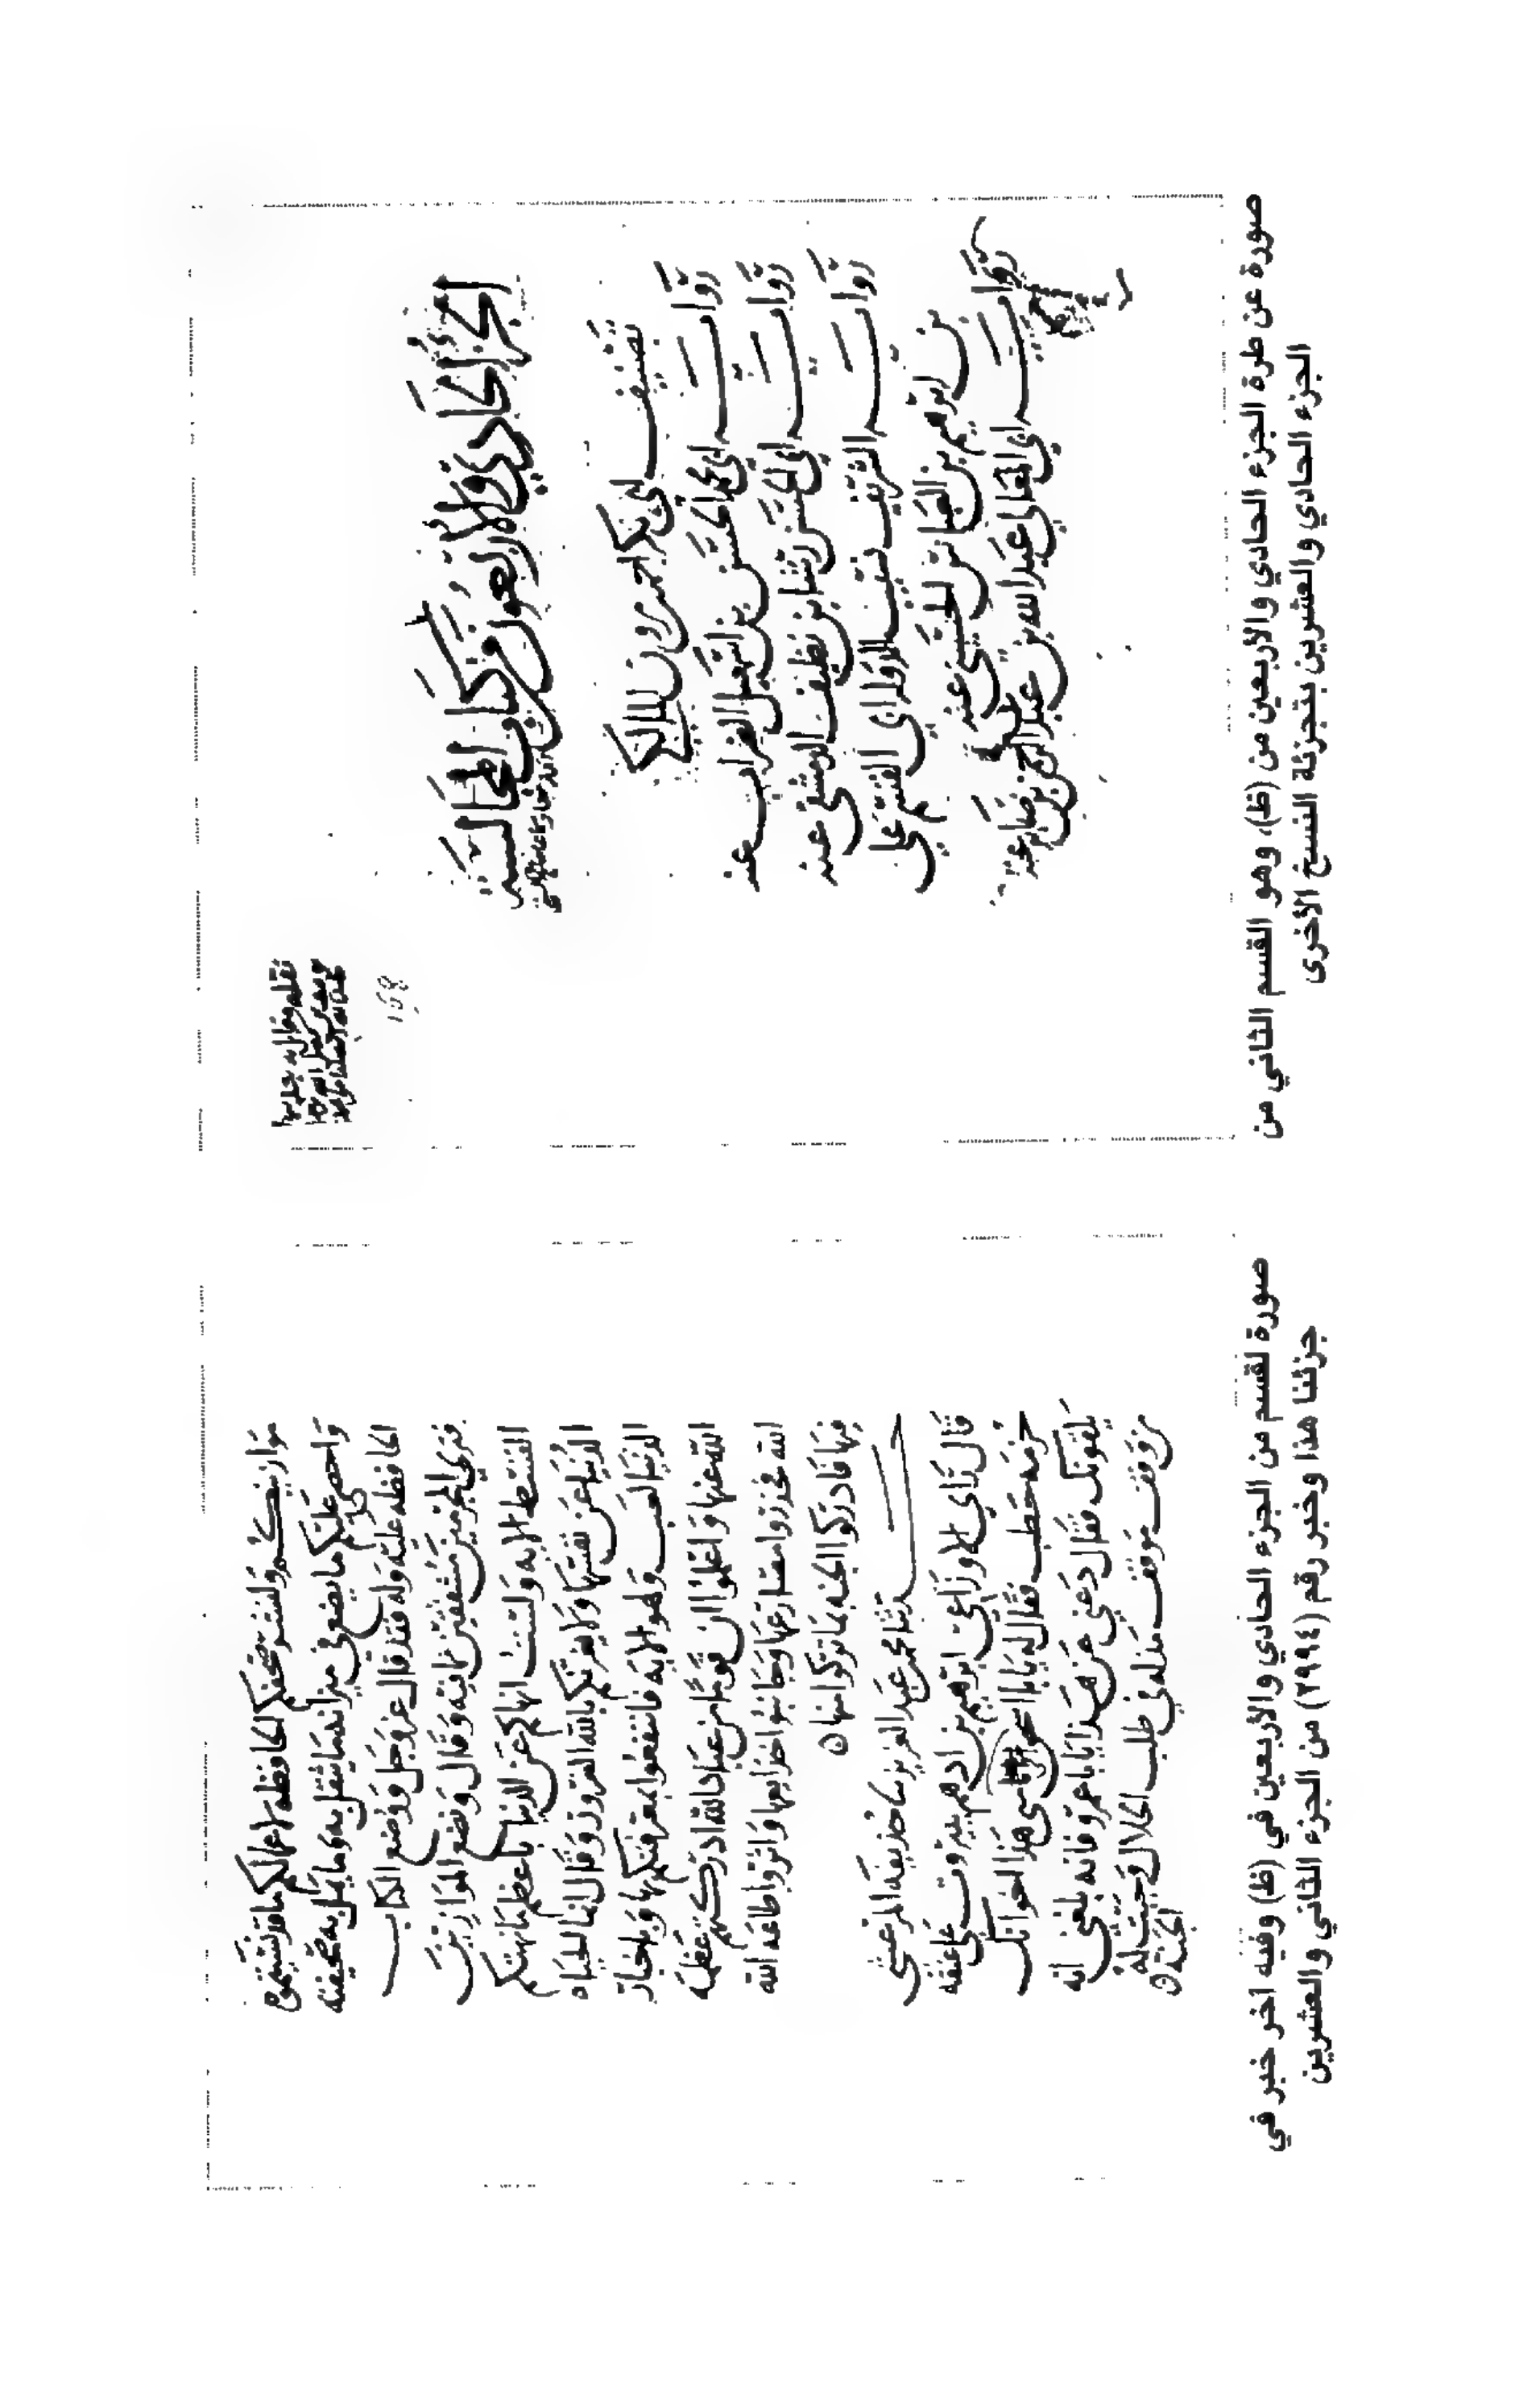 الجزء الحادي والأربعون من كتاب المجالسة
تصنيف أبي بكر أحمد بن مروان المالكي
رواية أبي محمد الحسن بن إسمعيل الضراب عنه
رواية أبي الحسن رشا بن نظيف الدمشقي عنه
رواية الشريف نقيب أبي القسم علي
بن إبرهيم بن العباس الحسيني عنه
رواية أبي المعالي عبد الله بن عبد الرحمن بن صابر عنه
صورة عن طرة الجزء الحادي والأربعين من (ظ)، وهو القسم الثاني من
الجزء الحادي والعشرين بتجزئة النسخ الأخرى
موازينكم ولتنشر صحفكم الحافظه لاعمالكم ما قد نسيتموه
واحصي عليكم ما يضع في ميزانه مما يثقل به وما يمل به صحيفته
الحافظه عليه وله فقد قال عز وجل ووضع الكتاب
فترى المجرمين مشفقين مما فيه وقال ونضع الموازين
القسط الايه وليس انهاكم عن الدنيا باعظم مما نهتكم
الدنيا عن نفسها ولا يغرنكم بالله الغرور وقال انما الحياه
الدنيا لعب ولهو الايه فانتفعوا بمعرفتكم بها وباخبار
الله عنها واعلموا ان قوما من عباد الله ادركتهم عظمه
الله فحذروا مصارعها وجانبوا خدايعها واثروا طاعه الله
فيها فادركوا الجنه بما تركوا منها ه
حدثنا محمد بن عبد العزيز نا حذيفه المرعشي
قال راي الاوزاعي ابرهيم بن ادهم ببيروت على عنقه
حزمه حطب فقال له يا ابا اسحق هذا اخوانك
يكفونك فقال دعني عن هذا يا با عمرو فانه بلغني انه
من وقف موقف مذله في طلب الحلال وجبت له
الجنه ه
صورة لقسم من الجزء الحادي والأربعين في (ظ) وفيه آخر خبر في
جزئنا هذا وخبر رقم (٢٩٩٤) من الجزء الثاني والعشرين